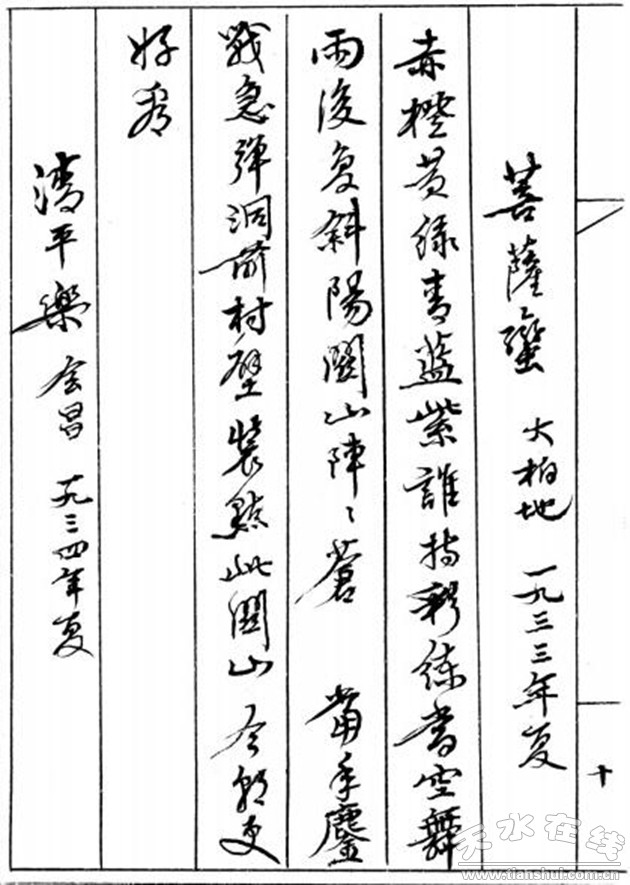 菩薩蠻 大柏地 一九三三年夏
赤橙黄绿青蓝紫誰持彩练當空舞
雨後复斜陽關山陣〻蒼 當年鏖
戰急彈洞前村壁裝點此關山今朝更
好看
清平樂 会昌 一九三四年夏
十
天水在线
www.tianshui.com.cn